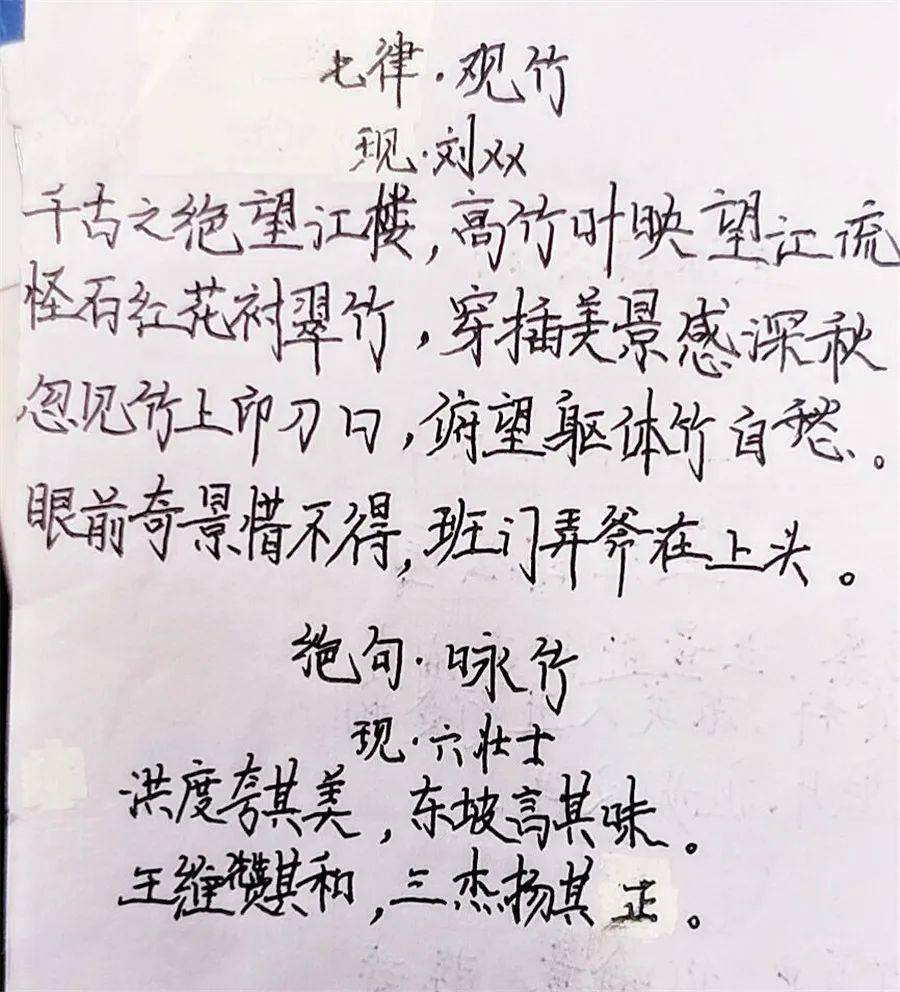 七律·观竹
现·刘双
千古之绝望江楼,高竹叶映望江流
怪石红花衬翠竹,穿插美景感深秋
忽见竹上印刀口,俯望躯体竹自愁。
眼前奇景惜不得,班门弄斧在上头。
绝句·咏竹
现·六壮士
洪度夸其美,东坡高其味。
王维赞其和,三杰扬其正。